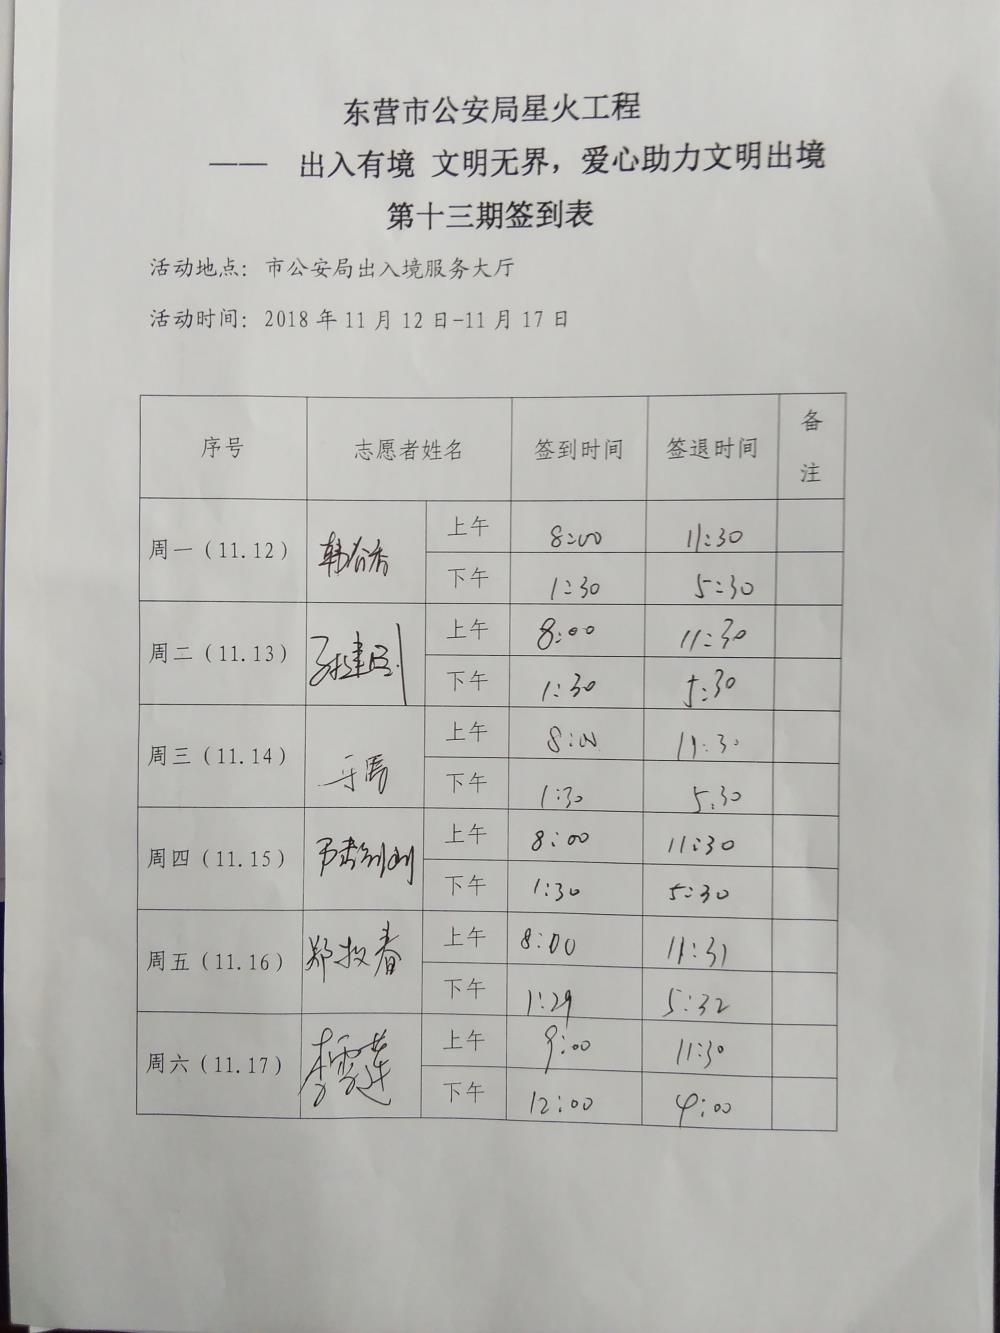 东营市公安局星火工程
—— 出入有境 文明无界，爱心助力文明出境
第十三期签到表
活动地点：市公安局出入境服务大厅
活动时间：2018年11月12日-11月17日
序号 志愿者姓名 签到时间 签退时间 备注
周一（11.12） 上午 8:00 11:30
下午 1:30 5:30
周二（11.13） 上午 8:00 11:30
下午 1:30 5:30
周三（11.14） 上午 8:00 11:30
下午 1:30 5.30
周四（11.15） 上午 8:00 11:30
下午 1:30 5:30
周五（11.16） 郑牧春 上午 8:00 11:31
下午 1:29 5:32
周六（11.17） 李雪莲 上午 9:00 11:30
下午 12:00 4:00